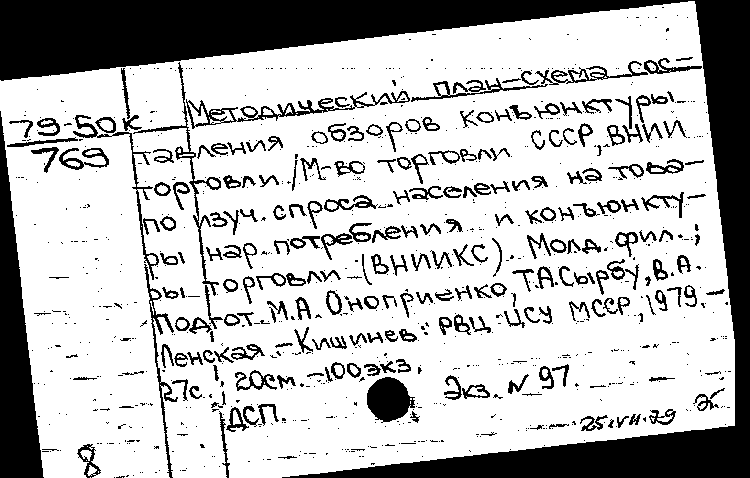 79-50к Методический план-схема сос-
769 тавления обзоров конъюнктуры
торговли /М-во торговли СССР, ВНИИ
по изуч. спроса населения на това-
ры нар. потребления и конъюнкту-
ры торговли (ВНИИКС). Молд. фил.;
Подгот. М.А. Оноприенко, Т.А. Сырбу, В.А.
Ленская.-Кишинев: РВЦ ЦСУ МССР, 1979.-
27с.; 20см.-100экз.
ДСП. Экз. N 97.
8 25.VII.79